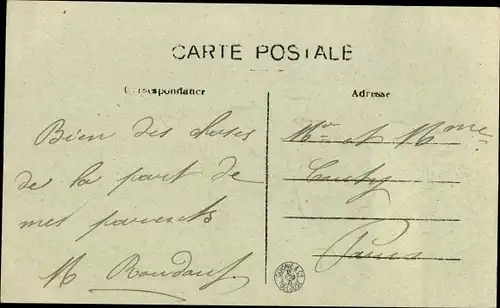 CARTE POSTALE
Correspondance
Adresse
Bien des choses
de la part de
mes parents
M
Mr et Mme
Paris